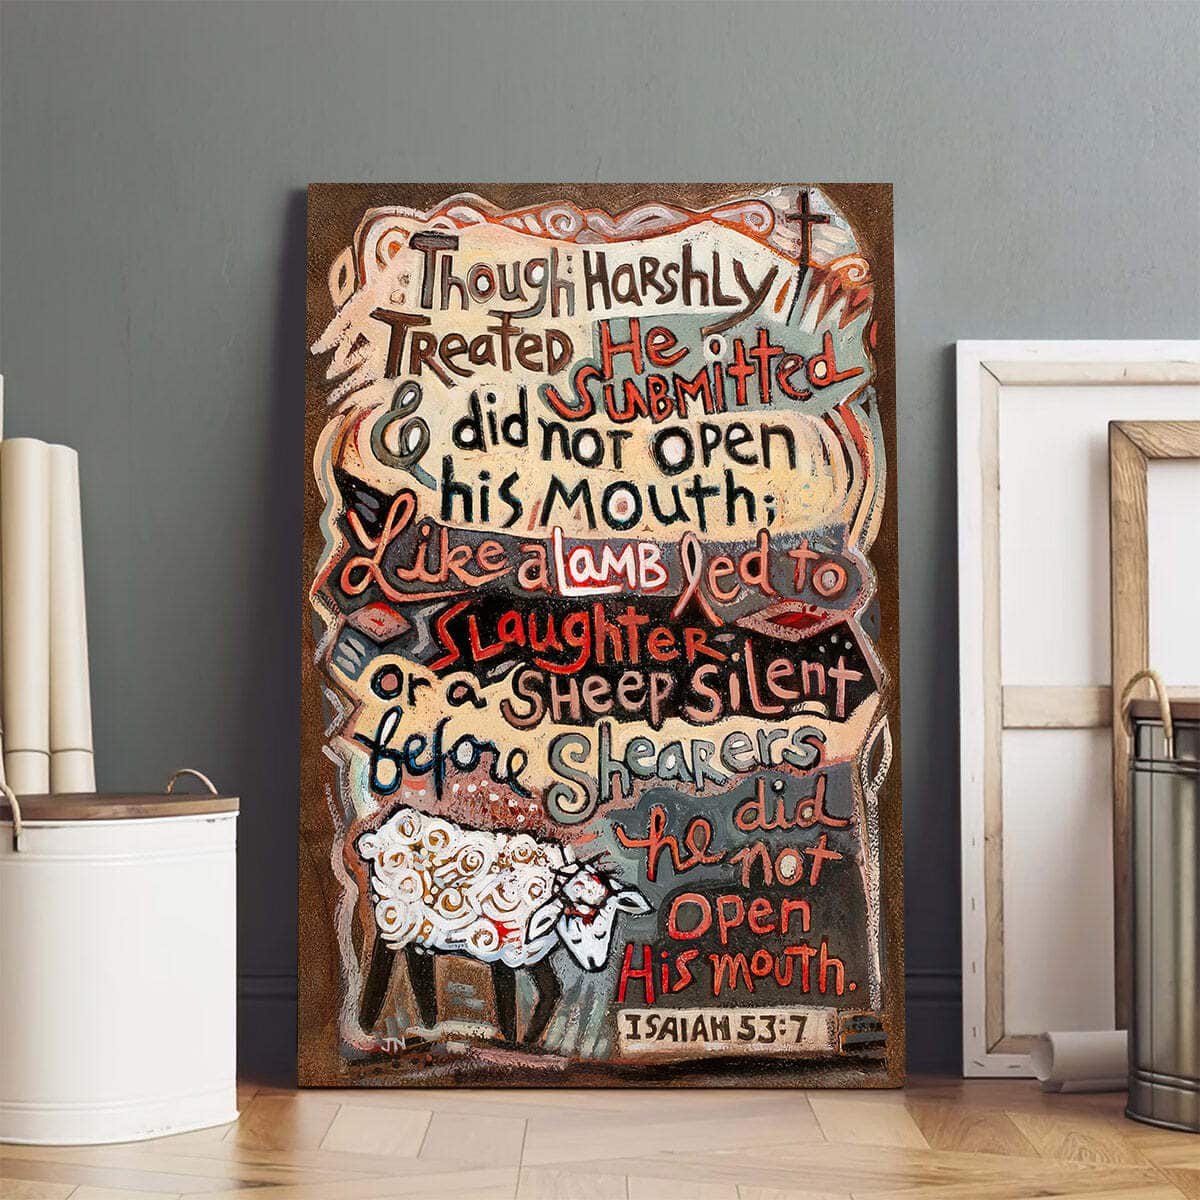 Though HARSHLY
TReaTeD He
SUBMitted
& did not open
his Mouth;
Like a LAMB led to
Slaughter-
or a SHeep SiLent
before SheaRers
he did
not
Open
His mouth.
ISAIAH 53:7
JN